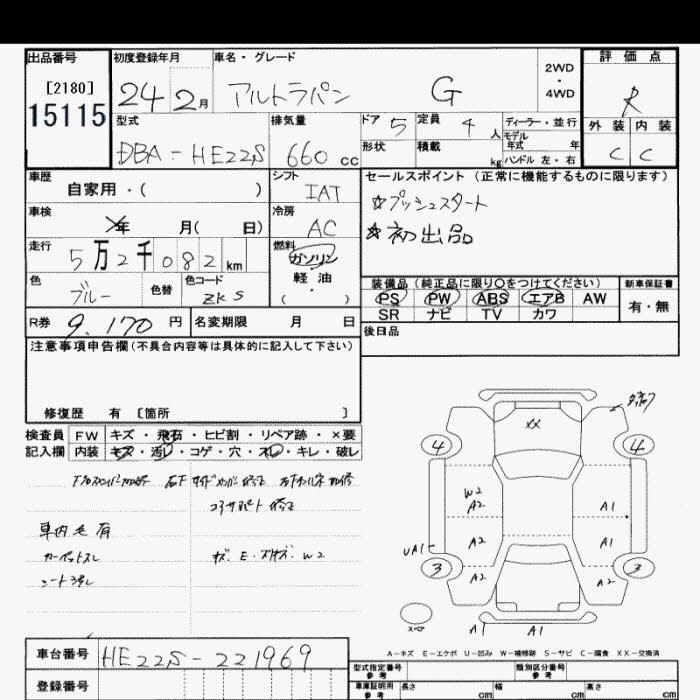 出品番号 初度登録年月 車名・グレード 2WD ・ 4WD 評価点
[2180] 24 2月 アルトラパン G R
15115 型式 排気量 ドア 5 定員 4人 ディーラー・並行 外装 内装
DBA-HE22S 660cc 形状 積載 kg モデル年式 年 ハンドル 左・右 C C
車歴 自家用・( ) シフト IAT セールスポイント(正常に機能するものに限ります)
☆プッシュスタート
車検 年 月( 日) 冷房 AC ☆初出品
走行 5万2千082km 燃料 ガソリン
色 ブルー 色替 色コード ZKS 軽油 ( ・ ) 装備品(純正品に限り○をつけてください) 新車保証書
PS PW ABS エアB AW 有・無
SR ナビ TV カワ
R券 9.170円 名変期限 月 日 後日品
注意事項申告欄(不具合内容等は具体的に記入して下さい)
修復歴 有 [箇所 ]
検査員 FW キズ・飛石・ヒビ割・リペア跡・×要
記入欄 内装 キズ・汚レ・コゲ・穴・スレ・キレ・破レ
コアサポート修正
車内毛有
カーペットスレ キズ・E・ W2
XX
4 4
W2
A2 A1
A2 A1
UA1
3 3
A2 A2
スペア A1 A1
A-キズ E-エクボ U-凹み W-補修跡 S-サビ C-腐食 XX-交換済
車台番号 HE22S-221969
登録番号 型式指定番号 参考 類別区分番号 参考
車庫証明用 参考 長さ cm 幅 cm 高さ cm